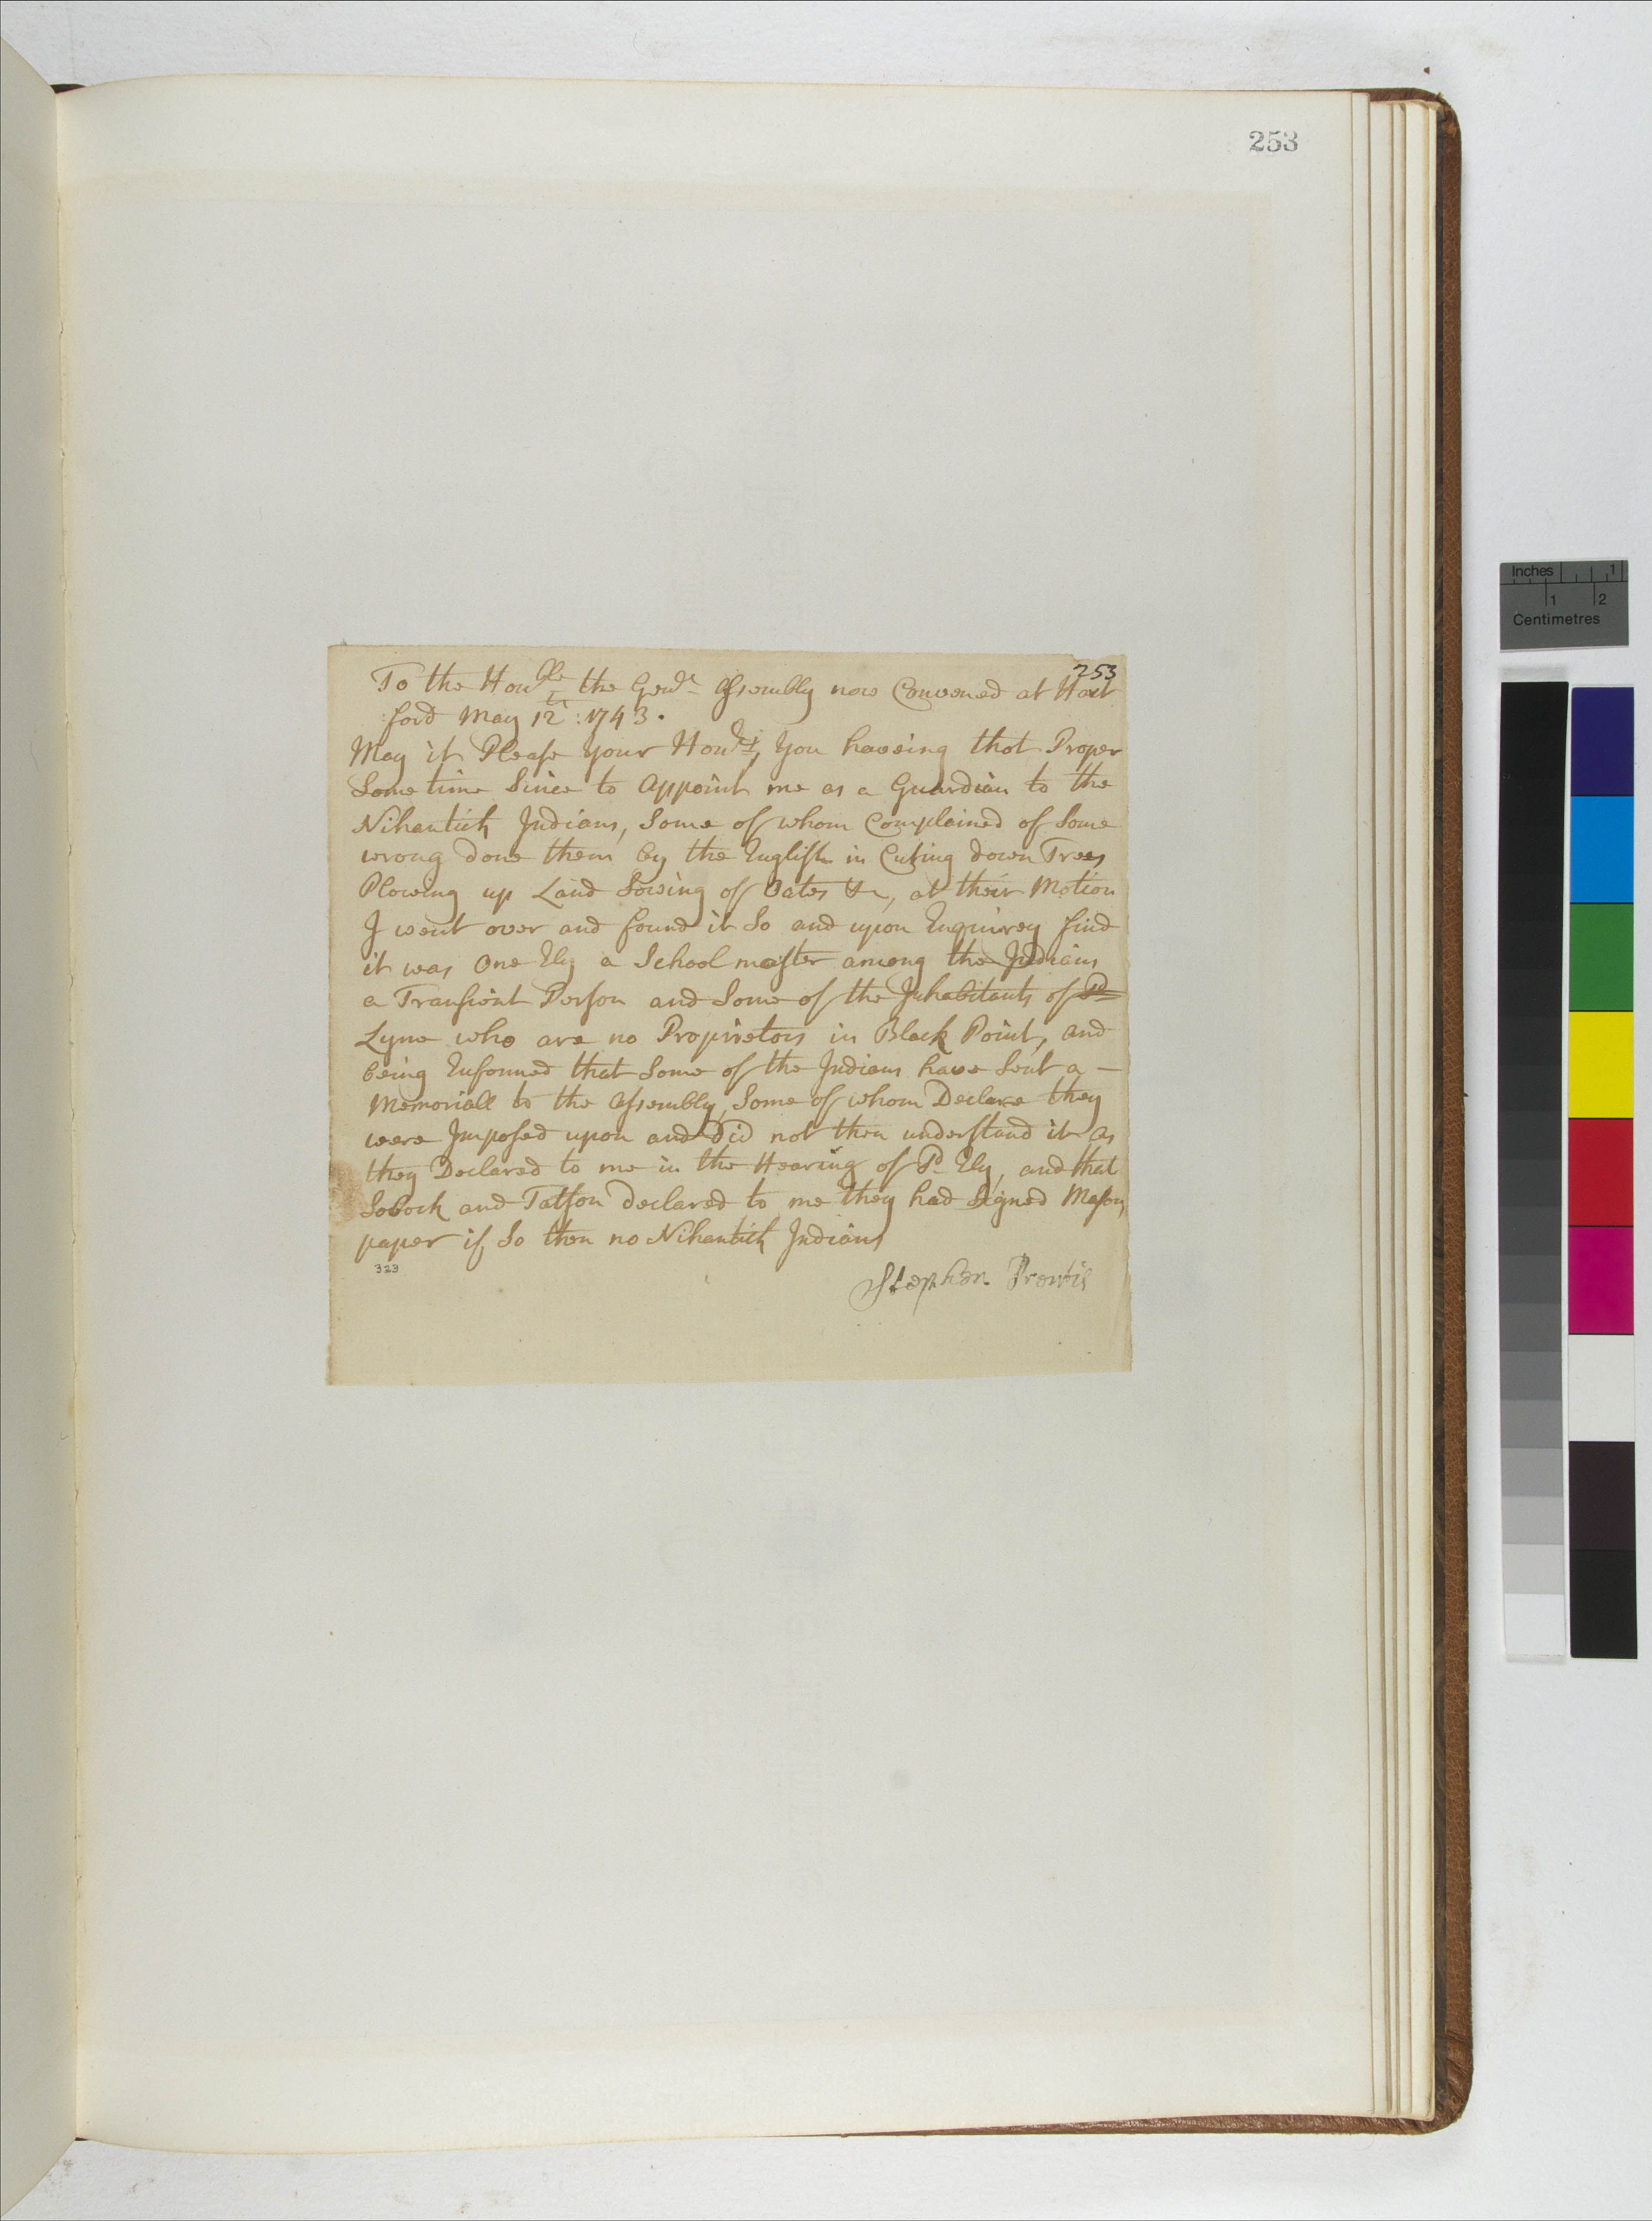 253
253
To the Hon^ble the Gen^ll Assembly now Convened at Hart
ford May 12^th : 1743.
May it Please your Hon^rs, you haveing thot Proper
Some time Since to Appoint me as a Guardian to the
Nihantick Indians, Some of whom Complained of Some
wrong done them by the English in Cuting down Trees
Plowing up Land Sowing of Oates &c, at their Motion
I went over and found it So and upon Enquirey find
it was One Ely a School master among the Indians
a Transient Person and Some of the Inhabitants of
Lyme who are no Proprietors in Black Point, and
being Enformed that Some of the Indians have Sent a —
Memoriall to the Assembly, Some of whom Declare they
were Imposed upon and Did not then understand it as
they Declared to me in the Hearing of S^d Ely, and that
Sobock and Tatson Declared to me they had Signed Masons
paper if So then no Nihantick Indians
323
Stephen Prentis
Inches 1
1 2
Centimetres